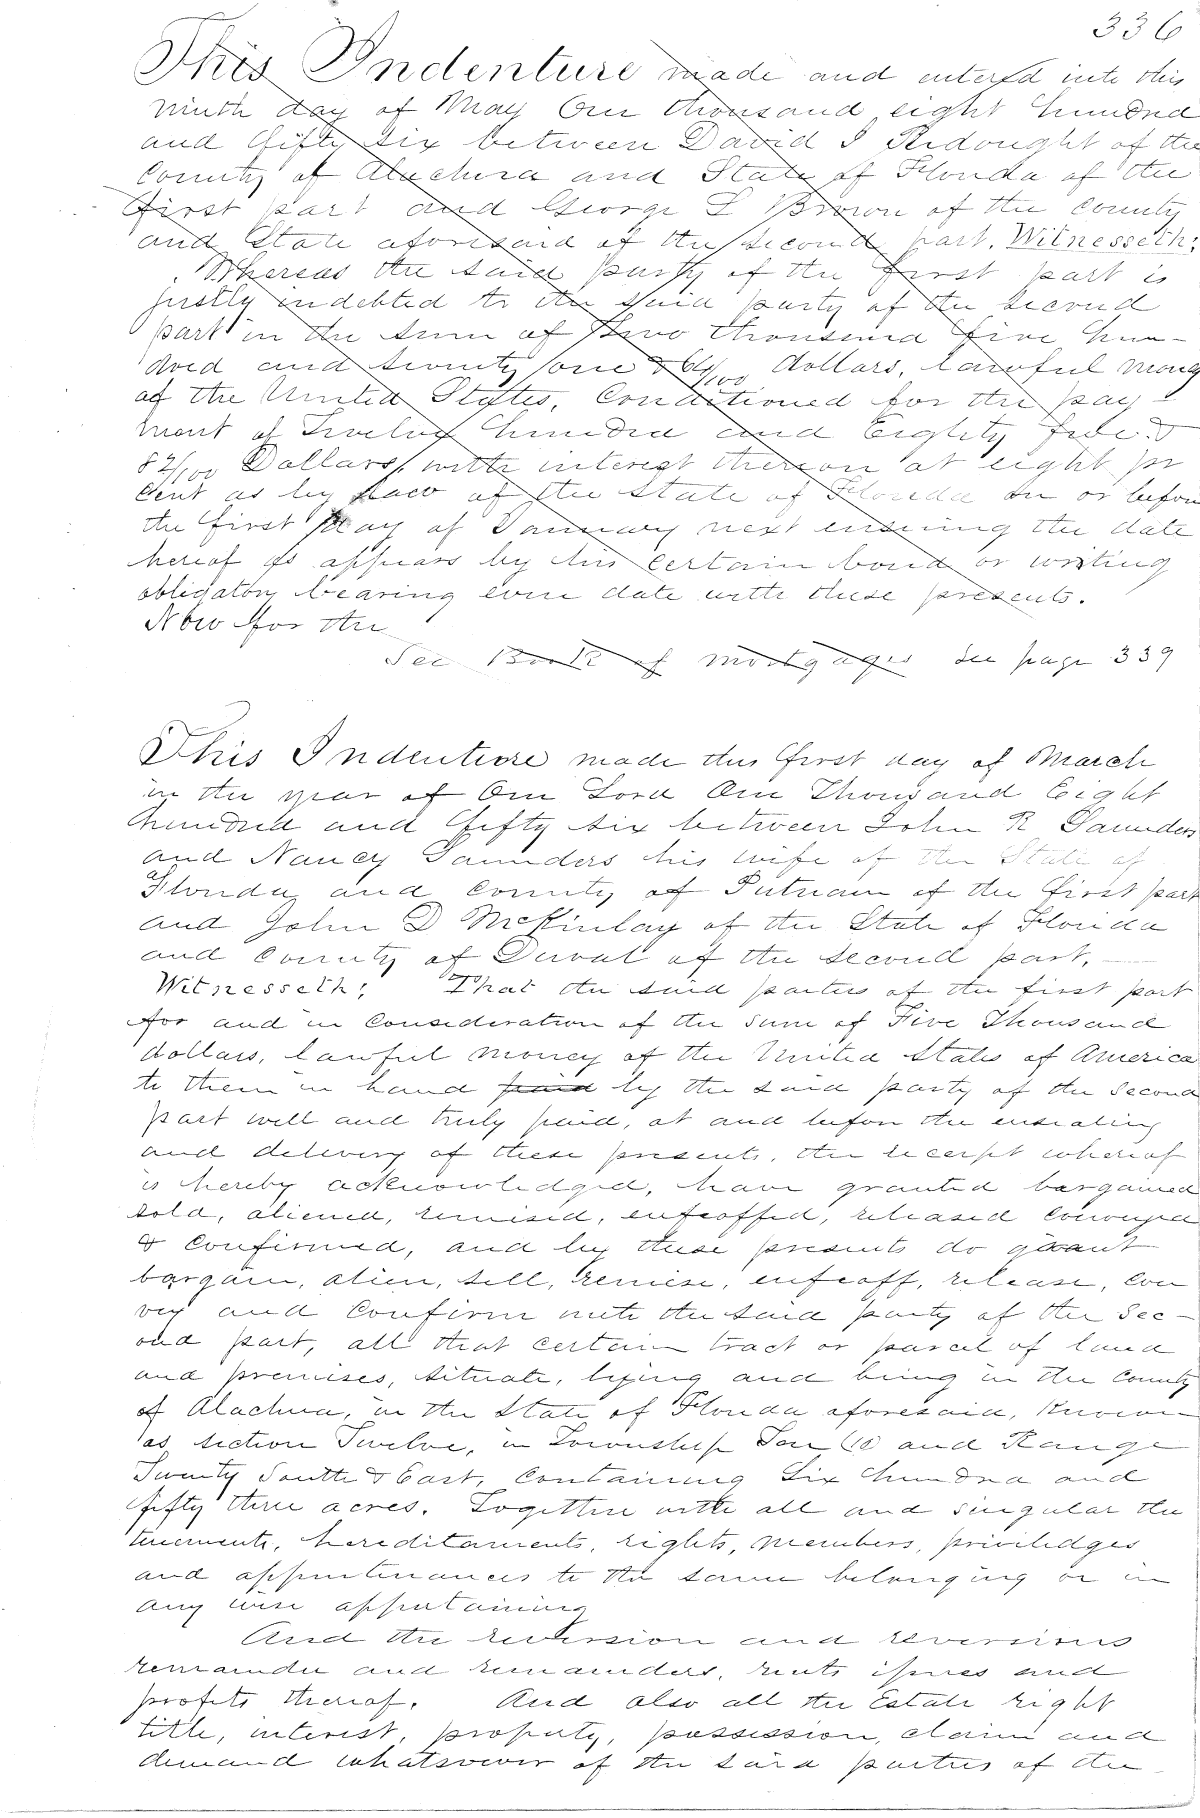 336
This Indenture made and entered into this
ninth day of May One thousand eight hundred
and fifty six between David I Ridought of the
County of Alachua and State of Florida of the
first part and George L Brown of the county
and State aforesaid of the second part. Witnesseth:
Whereas the said party of the first part is
justly indebted to the said party of the second
part in the sum of two thousand five hun-
dred and seventy one & 64/100 dollars, lawful money
of the United States, Conditioned for the pay-
ment of Twelve hundred and Eighty five &
82/100 Dollars, with interest thereon at eight pr
cent as by Law of the State of Florida on or before
the first day of January next ensuing the date
hereof as appears by his certain bond or writing
obligatory bearing even date with these presents.
Now for the
See Book of mortgages see page 339
This Indenture made this first day of March
in the year of Our Lord One Thousand Eight
hundred and fifty six between John R Saunders
and Nancy Saunders his wife of the State of
Florida and County of Putnam of the first part
and John D McKinlay of the State of Florida
and County of Duval of the second part.
Witnesseth: That the said parties of the first part
for and in consideration of the sum of Five Thousand
dollars, lawful money of the United States of America
to them in hand paid by the said party of the second
part well and truly paid, at and before the ensealing
and delivery of these presents, the receipt whereof
is hereby acknowledged, have granted bargained
sold, aliened, remised, enfeoffed, released conveyed
& confirmed, and by these presents do grant
bargain, alien, sell, remise, enfeoff, release, con
vey and confirm unto the said party of the sec-
ond part, all that certain tract or parcel of land
and premises, situate, lying and being in the County
of Alachua, in the State of Florida aforesaid, Known
as section Twelve, in Township Ten (10) and Range
Twenty South & East, Containing Six hundred and
fifty three acres. Together with all and singular the
tenements, hereditaments, rights, members, priviledges
and appurtenances to the same belonging or in
any wise appertaining
And the reversion and reversions
remainder and remainders, rents issues and
profits thereof. And also all the Estate right
title, interest, property, possession, claim and
demand whatsoever of the said parties of the